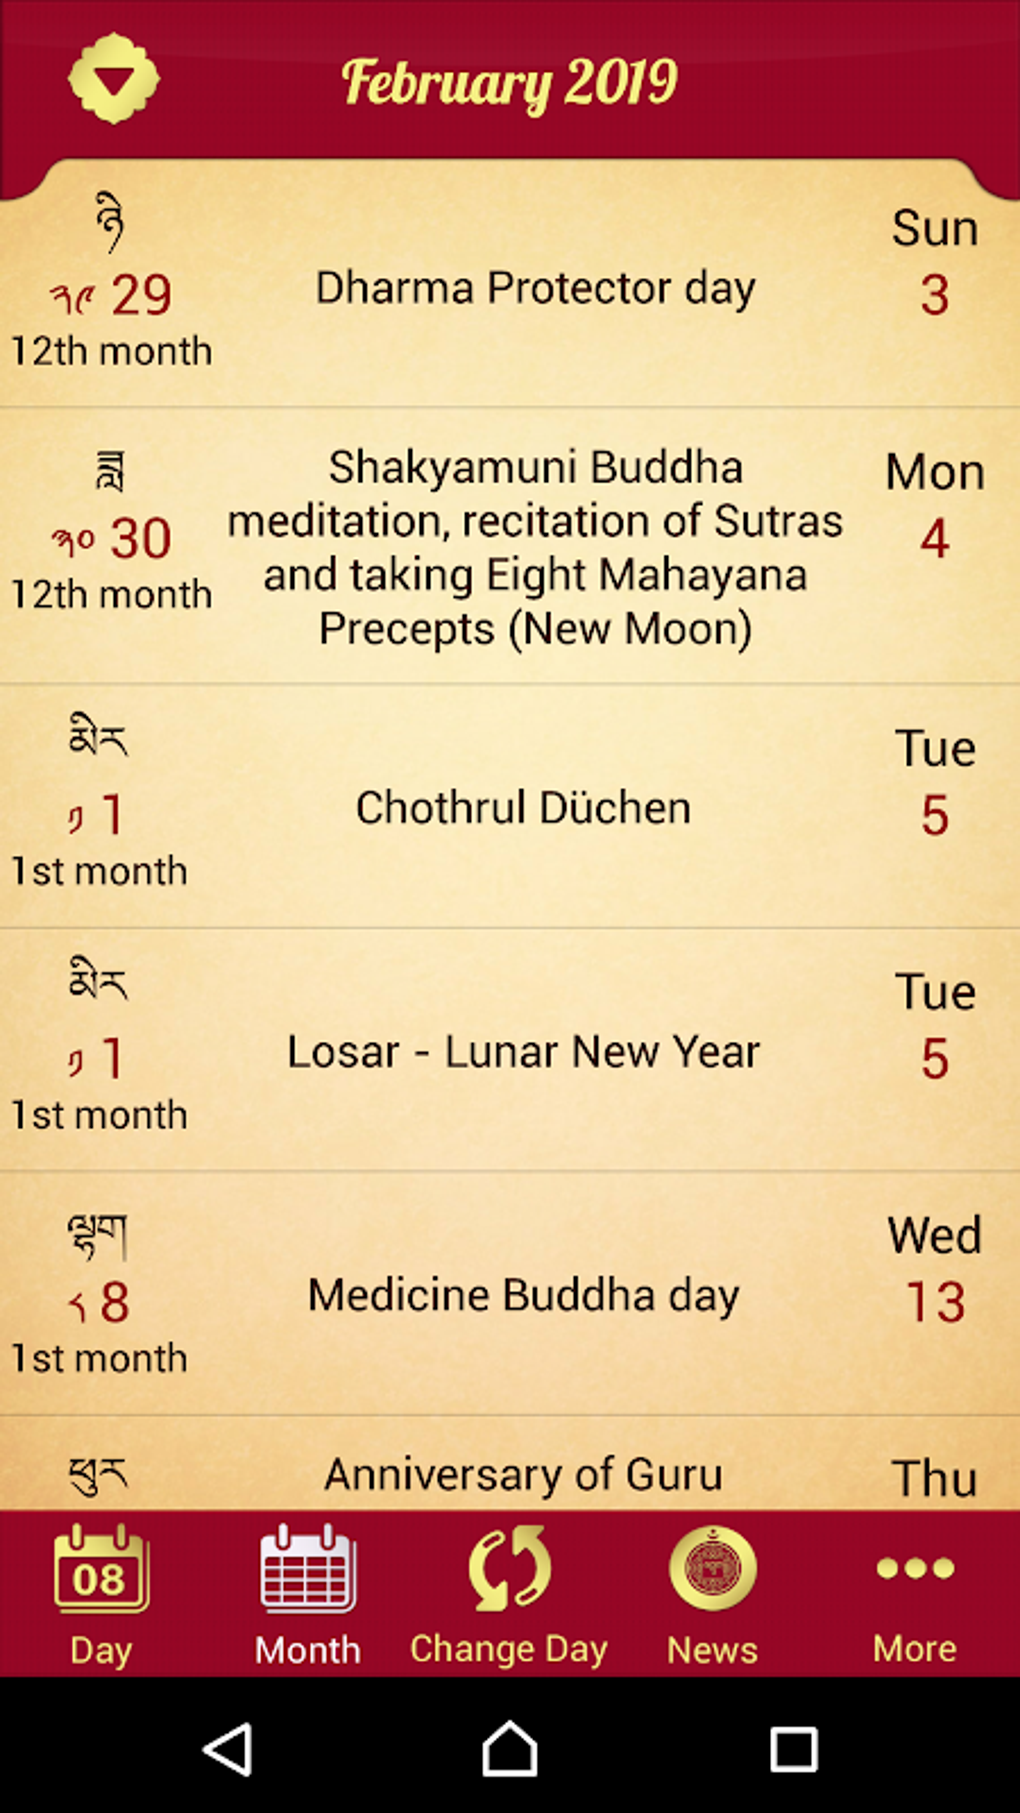 February 2019
ཉི
Sun
༢༩ 29
Dharma Protector day
3
12th month
ཟླ
Shakyamuni Buddha
Mon
meditation, recitation of Sutras
༣༠ 30
4
and taking Eight Mahayana
12th month
Precepts (New Moon)
མིར
Tue
༡ 1
Chothrul Düchen
5
1st month
མིར
Tue
༡ 1
Losar - Lunar New Year
5
1st month
ལྷག
Wed
༨ 8
Medicine Buddha day
13
1st month
ཕུར
Anniversary of Guru
Thu
08
Day
Month
Change Day
News
More